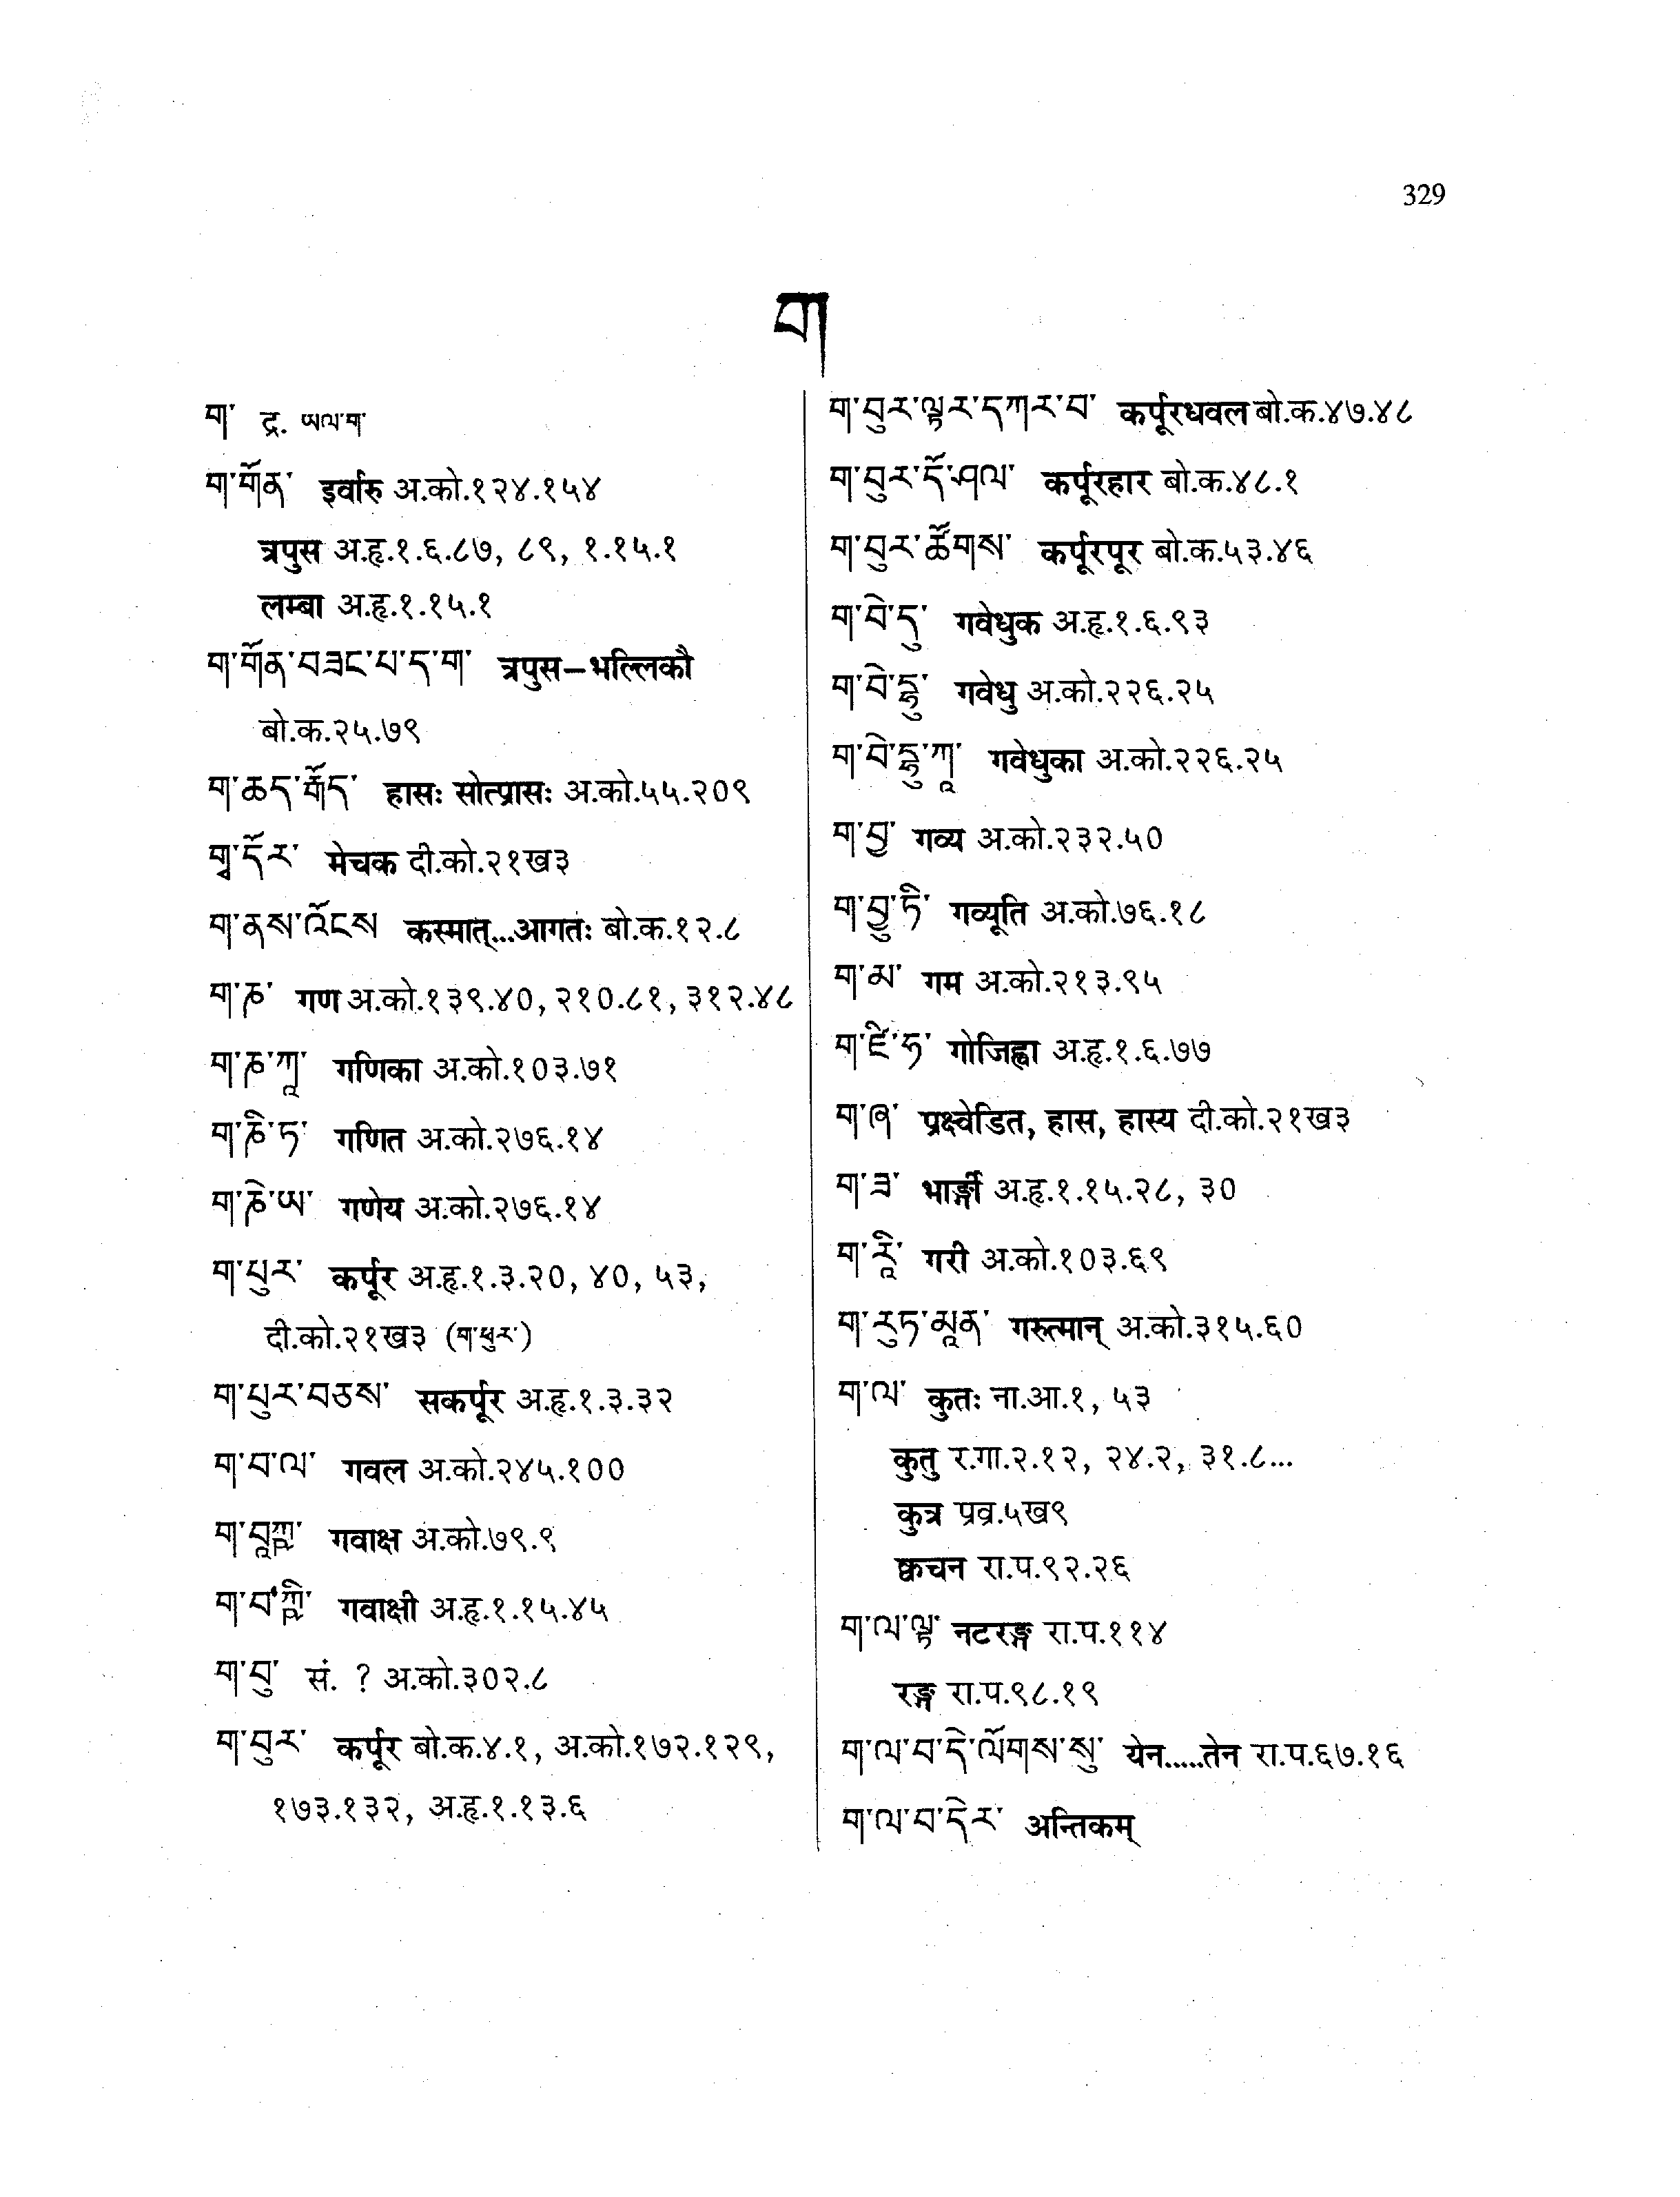 329
ག
ག་ द्र. ཡལ་ག་
ག་གོན་ इर्वारु अ.को.१२४.१५४
त्रपुस अ.हृ.१.६.८७, ८९, १.१५.१
लम्बा अ.हृ.१.१५.१
ག་གོན་བཟང་པ་ད་ག་ त्रपुस–भल्लिकौ
बो.क.२५.७९
ག་ཆད་རྒོད་ हासः सोत्प्रासः अ.को.५५.२०९
གྭ་དོར་ मेचक दी.को.२१ख३
ག་ནས་འོངས कस्मात्...आगतः बो.क.१२.८
ག་ཎ་ गण अ.को.१३९.४०, २१०.८१, ३१२.४८
ག་ཎ་ཀཱ་ गणिका अ.को.१०३.७१
ག་ཎི་ཏ་ गणित अ.को.२७६.१४
ག་ཎེ་ཡ་ गणेय अ.को.२७६.१४
ག་པུར་ कर्पूर अ.हृ.१.३.२०, ४०, ५३,
दी.को.२१ख३ (ག་ཕུར་)
ག་པུར་བཅས་ सकर्पूर अ.हृ.१.३.३२
ག་བ་ལ་ गवल अ.को.२४५.१००
ག་བཱཀྵ་ गवाक्ष अ.को.७९.९
ག་བ་ཀྵི་ गवाक्षी अ.हृ.१.१५.४५
ག་བུ་ सं. ? अ.को.३०२.८
ག་བུར་ कर्पूर बो.क.४.१, अ.को.१७२.१२९,
१७३.१३२, अ.हृ.१.१३.६
ག་བུར་ལྟར་དཀར་བ་ कर्पूरधवल बो.क.४७.४८
ག་བུར་དོ་ཤལ་ कर्पूरहार बो.क.४८.१
ག་བུར་ཚོགས་ कर्पूरपूर बो.क.५३.४६
ག་བེ་དུ་ गवेधुक अ.हृ.१.६.९३
ག་བེ་དྷུ་ गवेधु अ.को.२२६.२५
ག་བེ་དྷུ་ཀཱ་ गवेधुका अ.को.२२६.२५
ག་བྱ་ गव्य अ.को.२३२.५०
ག་བྱུ་ཏི་ गव्यूति अ.को.७६.१८
ག་མ་ गम अ.को.२१३.९५
ག་ཛི་ཧ་ गोजिह्वा अ.हृ.१.६.७७
ག་ཞ་ प्रक्ष्वेडित, हास, हास्य दी.को.२१ख३
ག་ཟ་ भार्ङ्गी अ.हृ.१.१५.२८, ३०
ག་རཱི་ गरी अ.को.१०३.६९
ག་རུཏ་མཱན་ गरुत्मान् अ.को.३१५.६०
ག་ལ་ कुतः ना.आ.१, ५३
कुतु र.गा.२.१२, २४.२, ३१.८...
कुत्र प्रव्र.५ख९
क्वचन रा.प.९२.२६
ག་ལ་ལྟ་ नटरङ्ग रा.प.११४
रङ्ग रा.प.९८.१९
ག་ལ་བ་དེ་ལོགས་སུ་ येन.....तेन रा.प.६७.१६
ག་ལ་བ་དེར་ अन्तिकम्